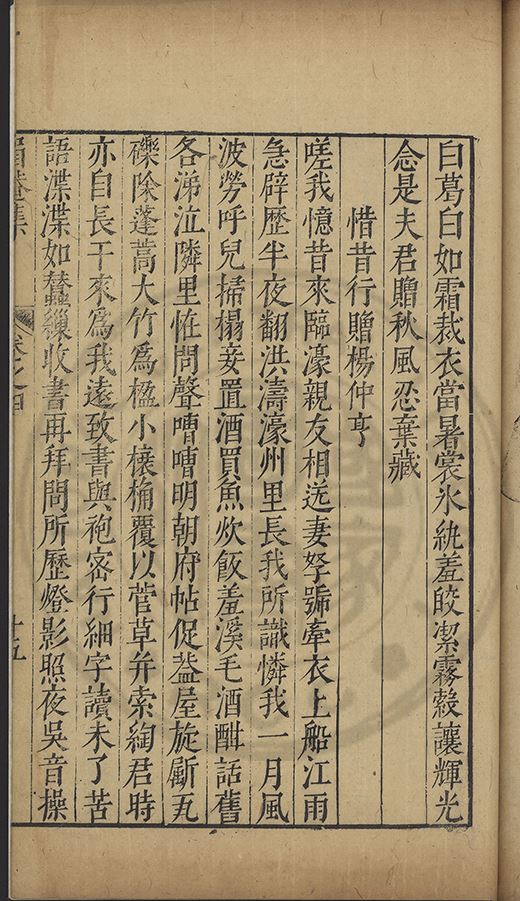 白葛白如霜裁衣當暑裳氷紈羞皎潔霧縠讓輝光
念是夫君贈秋風忍棄藏
惜昔行贈楊仲亨
嗟我憶昔來臨濠親友相送妻孥號牽衣上船江雨
急霹歷半夜翻洪濤濠州里長我所識憐我一月風
波勞呼兒掃榻妾置酒買魚炊飯羞溪毛酒酣話舊
各涕泣隣里怪問聲嘈嘈明朝府帖促葢屋旋斸瓦
礫除蓬蒿大竹為楹小榱桷覆以菅草并索綯君時
亦自長干來爲我遠致書與袍密行細字讀未了苦
語渫渫如蠶繅收書再拜問所歷燈影照夜吳音操
眉菴集
卷之四
十五